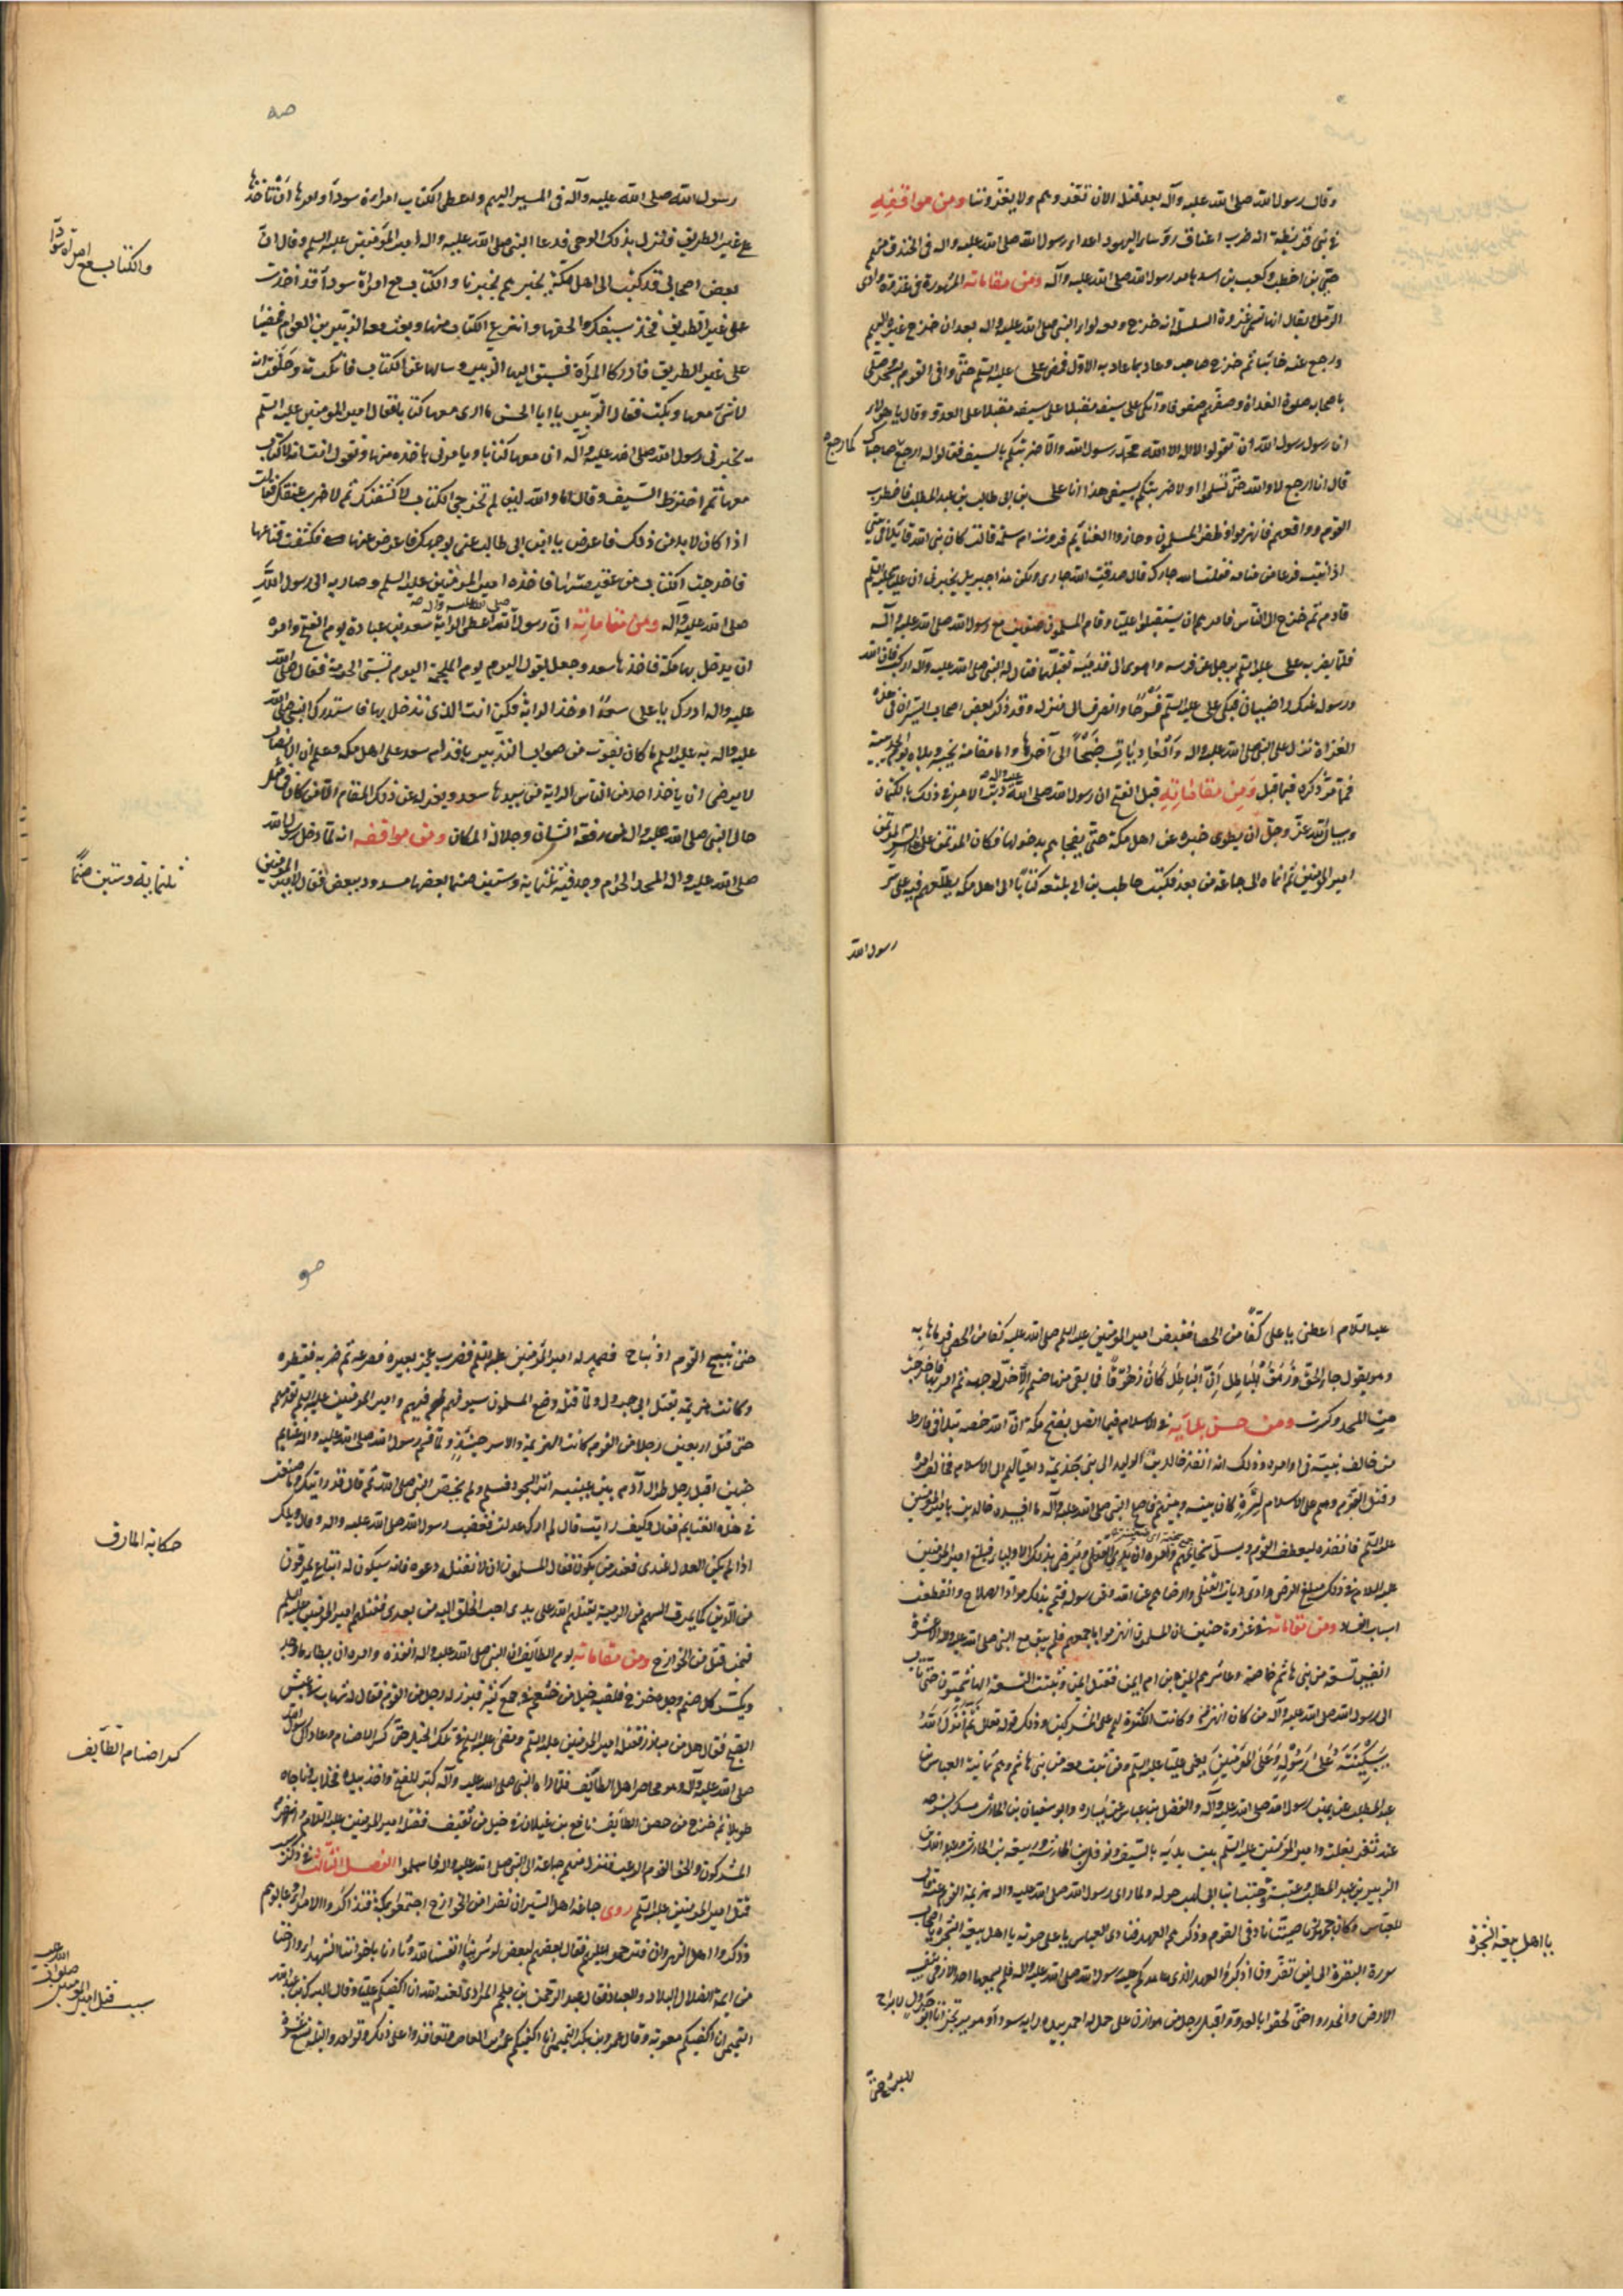 وقال رسول الله صلى الله عليه وآله بعد قتل الان نغزوهم ولا يغزوننا ومن مواقفه
في بني قريظة انه ضرب اعناق رؤساء اليهود اعداء رسول الله صلى الله عليه واله في الخندق منهم
حيي بن اخطب وكعب بن اسد بامر رسول الله صلى الله عليه وآله ومن مقاماته المشهورة في غزوة وادي
الرمل يقال انها تسمى غزوة السلسلة انه خرج ومعه لواء النبي صلى الله عليه واله بعد ان خرج غيره اليهم
ورجع عنهم خائبا ثم خرج صاحبه وعاد بما عاد به الاول فمضى علي عليه السلم حتى وافى القوم بسحر وصلى
باصحابه صلوة الغداة وصفهم صفوفا واتكى على سيفه مقبلا على العدو وقال يا هؤلاء
ان رسول رسول الله ان تقولوا لا اله الا الله محمد رسول الله والا ضربتكم بالسيف فقالوا له ارجع كما رجع صاحباك
قال انا ارجع لا والله حتى تسلموا او لاضربنكم بسيفي هذا انا علي بن ابي طالب بن عبد المطلب فاضطرب
القوم وواقعهم فانهزموا وظفر المسلمون وحازوا الغنايم فروت ام سلمة قالت كان نبي الله قايلا في بيتي
اذ انتبه فزعا من منامه فقلت الله جارك قال صدقت الله جاري ولكن هذا جبريل يخبرني ان عليا عليه السلم
قادم ثم خرج الى الناس فامرهم ان يستقبلوا عليا وقام المسلمون صفين مع رسول الله صلى الله عليه وآله
فلما بصر به علي عليه السلم ترجل عن فرسه واهوى الى قدميه يقبلهما فقال له النبي صلى الله عليه وآله اركب فان الله
ورسوله عنك راضيان فبكى علي عليه السلم فرحا وانصرف الى منزله وقد ذكر بعض اصحاب السير ان في هذه
الغزاة نزل على النبي صلى الله عليه واله والعاديات ضبحا الى آخرها واما مقامه بخيبر وبلاه يوم الحديبية
فما مر ذكره فيما قبل ومن مقاماته قبل الفتح ان رسول الله صلى الله عليه واله دبر الامر في ذلك بالكتمان
وسأل الله عز وجل ان يطوى خبره عن اهل مكة حتى يفجاهم بدخولها فكان المؤتمن على هذا السر
امير المؤمنين ثم انماه الى جماعة من بعد فكتب حاطب بن ابي بلتعة كتابا الى اهل مكة يطلعهم فيه على سر
رسول الله
صه
رسول الله صلى الله عليه وآله في المسير اليهم واعطى الكتاب امراة سوداء وامرها ان تاخذ بها
على غير الطريق فنزل بذلك الوحي فدعا النبي صلى الله عليه واله امير المؤمنين عليه السلم وقال ان
بعض اصحابي قد كتب الى اهل مكة يخبرهم بخبرنا والكتاب مع امراة سوداء قد اخذت
على غير الطريق فخذ سيفك والحقها وانتزع الكتاب منها وبعث معه الزبير بن العوام فمضيا
على غير الطريق فادركا المرأة فسبق اليها الزبير وسالها عن الكتاب فانكرته وحلفت انه
لا شيء معها وبكت فقال الزبير يا ابا الحسن ما ارى معها كتابا فقال امير المؤمنين عليه السلم
يخبرني رسول الله صلى الله عليه وآله ان معها كتابا ويامرني باخذه منها وتقول انت انه لا كتاب
معها ثم اخترط السيف وقال اما والله لئن لم تخرجي الكتاب لاكشفنك ثم لاضربن عنقك فقالت
اذا كان لا بد من ذلك فاعرض يا ابن ابي طالب عني بوجهك فاعرض عنها فكشفت قناعها
فاخرجت الكتاب من عقيصتها فاخذه امير المؤمنين عليه السلم وصار به الى رسول الله
صلى الله عليه وآله ومن مقاماته ان رسول الله صلى الله عليه وآله اعطى الراية سعد بن عبادة يوم الفتح وامره
ان يدخل بها مكة فاخذها سعد وجعل يقول اليوم يوم الملحمة اليوم تستبى الحرمة فقال صلى الله
عليه واله ادرك يا علي سعدا وخذ الراية فكن انت الذي تدخل بها فاستدرك النبي صلى الله
عليه واله به عليه السلم ما كان يفوت من صواب التدبير باقدام سعد على اهل مكة وعلم ان الانصار
لا يرضى ان ياخذ احد من الناس الراية من سيدها سعد ويعزله عن ذلك المقام الا من كان في مثل
حال النبي صلى الله عليه واله من رفعة الشان وجلالة المكان ومن مواقفه انه لما دخل رسول الله
صلى الله عليه واله المسجد الحرام وجد فيه ثلثمائة وستين صنما بعضها مسدود ببعض فقال لامير المؤمنين
والكتاب مع امراة سوداء
ثلثمائة وستين صنما
عليه السلام اعطني يا علي كفا من الحصا فقبض امير المؤمنين عليه السلم كفا من الحصى فرماها به
وهو يقول جاء الحق وزهق الباطل ان الباطل كان زهوقا فما بقى منها صنم الا خر لوجهه ثم امر بها فاخرجت
من المسجد وكسرت ومن حسن بلائه في الاسلام فيما اتصل بفتح مكة ان الله خصه بتلافي فارط
من خالف نبيه في اوامره وذلك انه انفذ خالد بن الوليد الى بني جذيمة داعيا لهم الى الاسلام فخالف امره
وقتل القوم وهم على الاسلام لترة كان بينه وبينهم فاصلح النبي صلى الله عليه وآله ما افسده خالد بن بامير المؤمنين
عليه السلم فانفذه ليعطف القوم ويسل سخايمهم وامره ان يدي القتلى ويرضي بذلك الاولياء فبلغ امير المؤمنين
عليه السلام في ذلك مبلغ الرضى وادى ديات القتلى وارضاهم عن الله وعن رسوله فتم بذلك مواد الصلاح وانقطعت
اسباب الفساد ومن مقاماته في غزوة حنين ان المسلمين انهزموا باجمعهم فلم يبق مع النبي صلى الله عليه واله الا عشرة
انفس تسعة من بني هاشم خاصة وعاشرهم ايمن بن ام ايمن فقتل ايمن وثبتت التسعة الهاشميون حتى ثاب
الى رسول الله صلى الله عليه وآله من كان انهزم وكانت الكرة لهم على المشركين وذلك قوله تعالى ثم انزل الله
سكينته على رسوله وعلى المؤمنين يعني عليا عليه السلم ومن ثبت معه من بني هاشم وهم ثمانية العباس بن
عبد المطلب عن يمين رسول الله صلى الله عليه وآله والفضل بن عباس عن يساره وابو سفيان بن الحارث ممسك بسرجه
عند ثفر بغلته وامير المؤمنين عليه السلم بين يديه بالسيف ونوفل بن الحارث وربيعة بن الحارث وعبد الله بن
الزبير بن عبد المطلب وعتبة ومعتب ابنا ابي لهب حوله ولما راى رسول الله صلى الله عليه واله هزيمة القوم عنه قال
للعباس وكان جهوريا صيتا ناد في القوم وذكرهم العهد فنادى العباس باعلى صوته يا اهل بيعة الشجرة يا اصحاب
سورة البقرة الى اين تفرون اذكروا العهد الذي عاهدكم عليه رسول الله صلى الله عليه واله فلم يسمعها احد الا رمى بنفسه
الارض وانحدروا حتى لحقوا بالعدو واقبل رجل من هوازن على جمل له احمر بيده راية سوداء وهو يرتجز انا ابو جرول لا براح
يا اهل بيعة الشجرة
صو
حتى نبيح القوم او نباح فصمد له امير المؤمنين عليه السلم فضرب عجز بعيره فصرعه ثم ضربه فقطره
وكانت هزيمتهم بقتل ابي جرول ولما قتل وضع المسلمون سيوفهم فيهم وامير المؤمنين عليه السلم يقدمهم
حتى قتل اربعين رجلا من القوم كانت الهزيمة والاسر حينئذ ولما قسم رسول الله صلى الله عليه واله غنايم
حنين اقبل رجل طوال آدم بين عينيه اثر السجود فسلم ولم يخص النبي صلى الله عليه ثم قال قد رايتك وما صنعت
في هذه الغنايم فقال وكيف رايت قال لم ارك عدلت فغضب رسول الله صلى الله عليه واله وقال ويلك
اذا لم يكن العدل عندي فعند من يكون فقال المسلمون الا نقتله فقال دعوه فانه سيكون له اتباع يمرقون
من الدين كما يمرق السهم من الرمية يقتلهم الله على يدي احب الخلق اليه من بعدي فقتلهم امير المؤمنين عليه السلم
فيمن قتل من الخوارج ومن مقاماته يوم الطايف ان النبي صلى الله عليه واله انفذه وامره ان يطأ ما وجد
ويكسر كل صنم وجده فخرج فلقيه خيل من خثعم في جمع كثير فبرز له رجل من القوم فقال له شهاب في غبش
الصبح فقال هل من مبارز فقتله امير المؤمنين عليه السلم ومضى عليه السلم في تلك الخيل حتى كسر الاصنام وعاد الى رسول الله
صلى الله عليه وآله وهو محاصر اهل الطائف فلما راه النبي صلى الله عليه وآله كبر للفتح واخذ بيده فخلا به فناجاه
طويلا ثم خرج من حصن الطائف نافع بن غيلان في خيل من ثقيف فقتله امير المؤمنين عليه السلام وانهزم
المشركون ولحق القوم الرعب فنزل منهم جماعة الى النبي صلى الله عليه واله فاسلموا الفصل الثالث في ذكر سبب
قتل امير المؤمنين عليه السلم روى جماعة اهل السير ان نفرا من الخوارج اجتمعوا بمكة فتذاكروا الامراء فعابوهم
وذكروا اهل النهروان وترحموا عليهم فقال بعضهم لبعض لو شرينا انفسنا لله وثارنا باخواننا الشهداء وارحنا
من ايمة الضلال البلاد والعباد فقال عبد الرحمن بن ملجم المرادي لعنه الله انا اكفيكم عليا وقال البرك بن عبد الله
التميمي انا اكفيكم معوية وقال عمرو بن بكر التميمي انا اكفيكم عمرو بن العاص وتعاقدوا على ذلك وتواعدوا
حكاية المارق
كسر اصنام الطايف
سبب قتل امير المؤمنين صلوات الله عليه